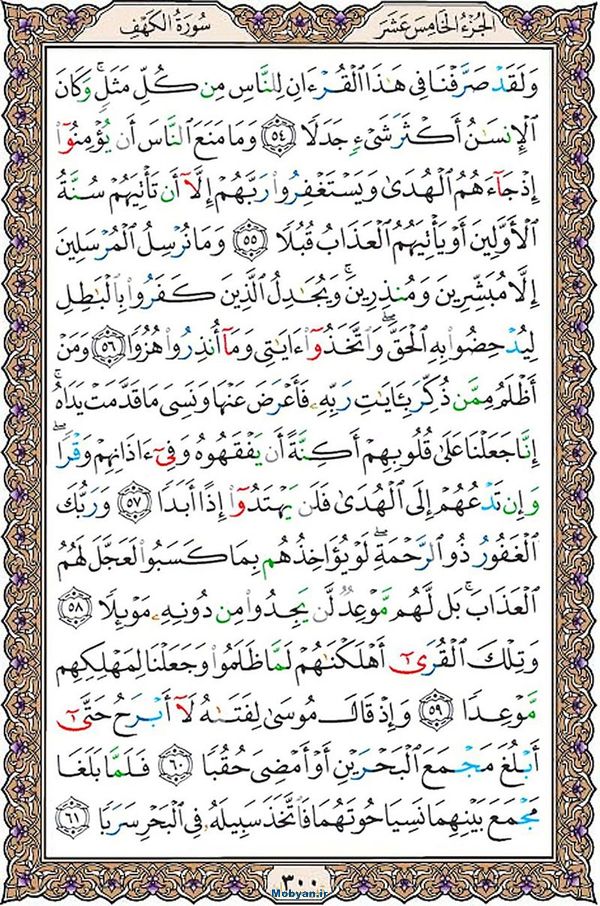 الجزء الخامس عشر
سورة الكهف
وَلَقَدْ صَرَّفْنَا فِى هَٰذَا ٱلْقُرْءَانِ لِلنَّاسِ مِن كُلِّ مَثَلٍۢ ۚ وَكَانَ
ٱلْإِنسَٰنُ أَكْثَرَ شَىْءٍۢ جَدَلًۭا ٥٤ وَمَا مَنَعَ ٱلنَّاسَ أَن يُؤْمِنُوٓا۟
إِذْ جَآءَهُمُ ٱلْهُدَىٰ وَيَسْتَغْفِرُوا۟ رَبَّهُمْ إِلَّآ أَن تَأْتِيَهُمْ سُنَّةُ
ٱلْأَوَّلِينَ أَوْ يَأْتِيَهُمُ ٱلْعَذَابُ قُبُلًۭا ٥٥ وَمَا نُرْسِلُ ٱلْمُرْسَلِينَ
إِلَّا مُبَشِّرِينَ وَمُنذِرِينَ ۚ وَيُجَٰدِلُ ٱلَّذِينَ كَفَرُوا۟ بِٱلْبَٰطِلِ
لِيُدْحِضُوا۟ بِهِ ٱلْحَقَّ ۖ وَٱتَّخَذُوٓا۟ ءَايَٰتِى وَمَآ أُنذِرُوا۟ هُزُوًۭا ٥٦ وَمَنْ
أَظْلَمُ مِمَّن ذُكِّرَ بِـَٔايَٰتِ رَبِّهِۦ فَأَعْرَضَ عَنْهَا وَنَسِىَ مَا قَدَّمَتْ يَدَاهُ ۚ
إِنَّا جَعَلْنَا عَلَىٰ قُلُوبِهِمْ أَكِنَّةً أَن يَفْقَهُوهُ وَفِىٓ ءَاذَانِهِمْ وَقْرًۭا ۖ
وَإِن تَدْعُهُمْ إِلَى ٱلْهُدَىٰ فَلَن يَهْتَدُوٓا۟ إِذًا أَبَدًۭا ٥٧ وَرَبُّكَ
ٱلْغَفُورُ ذُو ٱلرَّحْمَةِ ۖ لَوْ يُؤَاخِذُهُم بِمَا كَسَبُوا۟ لَعَجَّلَ لَهُمُ
ٱلْعَذَابَ ۚ بَل لَّهُم مَّوْعِدٌۭ لَّن يَجِدُوا۟ مِن دُونِهِۦ مَوْئِلًۭا ٥٨
وَتِلْكَ ٱلْقُرَىٰٓ أَهْلَكْنَٰهُمْ لَمَّا ظَلَمُوا۟ وَجَعَلْنَا لِمَهْلِكِهِم
مَّوْعِدًۭا ٥٩ وَإِذْ قَالَ مُوسَىٰ لِفَتَىٰهُ لَآ أَبْرَحُ حَتَّىٰٓ
أَبْلُغَ مَجْمَعَ ٱلْبَحْرَيْنِ أَوْ أَمْضِىَ حُقُبًۭا ٦٠ فَلَمَّا بَلَغَا
مَجْمَعَ بَيْنِهِمَا نَسِيَا حُوتَهُمَا فَٱتَّخَذَ سَبِيلَهُۥ فِى ٱلْبَحْرِ سَرَبًۭا ٦١
٣٠٠
Mobyan.ir